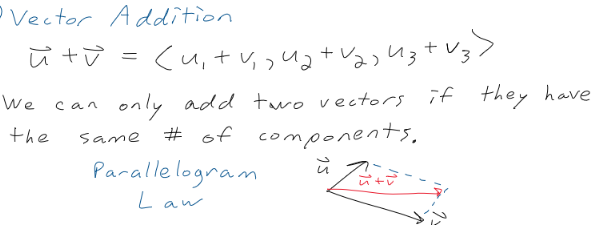 Vector Addition
u⃗ + v⃗ = <u₁ + v₁, u₂ + v₂, u₃ + v₃>
We can only add two vectors if they have
the same # of components.
Parallelogram
Law
u⃗
u⃗ + v⃗
v⃗